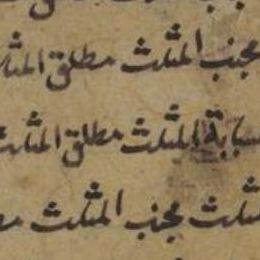 مجنب المثلث مطلق المثلث
سبابة المثلث مطلق المثلث
المثلث مجنب المثلث